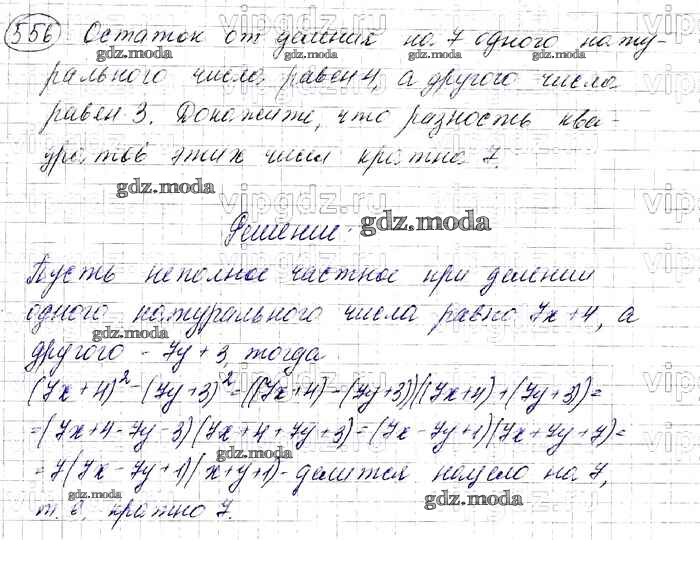 556 Остаток от деления на 7 одного нату-
рального числа равен 4, а другого числа
равен 3. Докажите, что разность ква-
дратов этих чисел кратна 7.
Решение:
Пусть неполное частное при делении
одного натурального числа равно 7x+4, а
другого - 7y+3, тогда
(7x+4)²-(7y+3)²=((7x+4)-(7y+3))((7x+4)+(7y+3))=
=(7x+4-7y-3)(7x+4+7y+3)=(7x-7y+1)(7x+7y+7)=
=7(7x-7y+1)(x+y+1)- делится нацело на 7,
т.е. кратно 7.
gdz.moda
vipgdz.ru